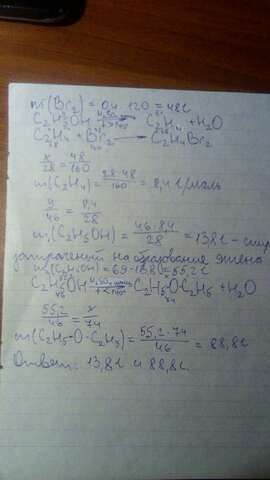 m(Br₂) = 0,4 · 120 = 48 г
C₂H₅OH → C₂H₄ + H₂O
C₂H₄ + Br₂ → C₂H₄Br₂
x/28 = 48/160
m(C₂H₄) = 28·48/160 = 8,4 г/моль
y/46 = 8,4/28
m₁(C₂H₅OH) = 46·8,4/28 = 13,8 г –
на образование этена
m₂(C₂H₅OH) = 69 - 13,8 = 55,2 г
C₂H₅OH → C₂H₅-O-C₂H₅ + H₂O
55,2/46 = x/74
m(C₂H₅-O-C₂H₅) = 55,2·74/46 = 88,8 г
Ответ: 13,8 г и 88,8 г.